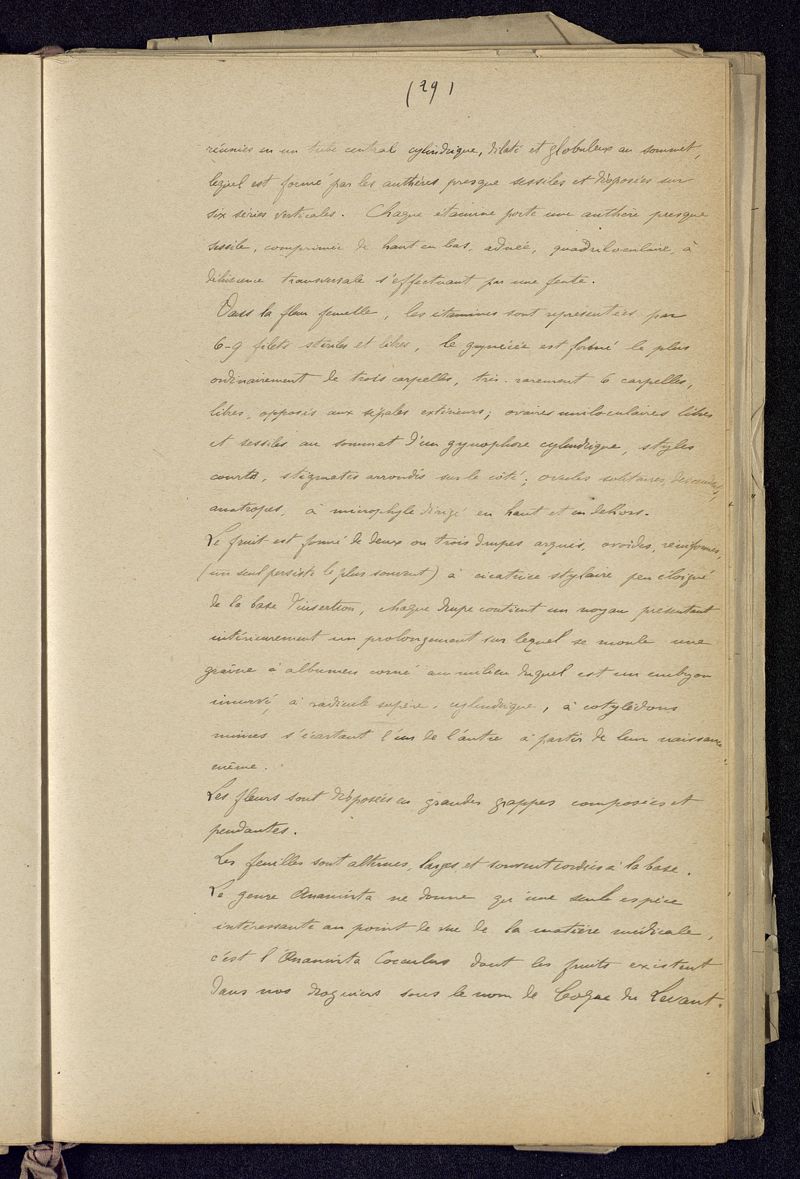 (29)
réunies en un tube central cylindrique, dilaté et globuleux au sommet,
lequel est formé par les anthères presque sessiles et disposées sur
six séries verticales. Chaque étamine porte une anthère presque
sessile, comprimée de haut en bas, adnée, quadriloculaire, à
déhiscence transversale s'effectuant par une fente.
Dans la fleur femelle, les étamines sont représentées par
6-9 filets stériles et libres, le gynécée est formé le plus
ordinairement de trois carpelles, très-rarement 6 carpelles,
libres, opposés aux sépales extérieurs; ovaires uniloculaires libres
et sessiles au sommet d'un gynophore cylindrique, styles
courts, stigmates arrondis sur le côté; ovules solitaires, descendants,
anatropes, à microphyle dirigé en haut et en dehors.
Le fruit est formé de deux ou trois drupes arqués, ovoïdes, réniformes,
(un seul persiste le plus souvent) à cicatrice stylaire peu éloigné
de la base d'insertion, chaque drupe contient un noyau présentant
intérieurement un prolongement sur lequel se moule une
graine à albumen corné au milieu duquel est un embryon
incurvé, à radicule supère, cylindrique, à cotylédons
minces s'écartant l'un de l'autre à partir de leur naissance
même.
Les fleurs sont disposées en grandes grappes composées et
pendantes.
Les feuilles sont alternes, larges, et souvent cordées à la base.
Le genre Anamirta ne donne qu'une seule espèce
intéressante au point de vue de la matière médicale,
c'est l'Anamirta Cocculus dont les fruits existent
dans nos droguiers sous le nom de Coque du Levant.